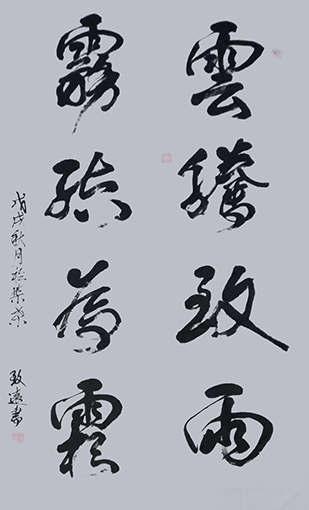 雲騰致雨
霧結為霜
戊戌秋月於柴桑 致遠書